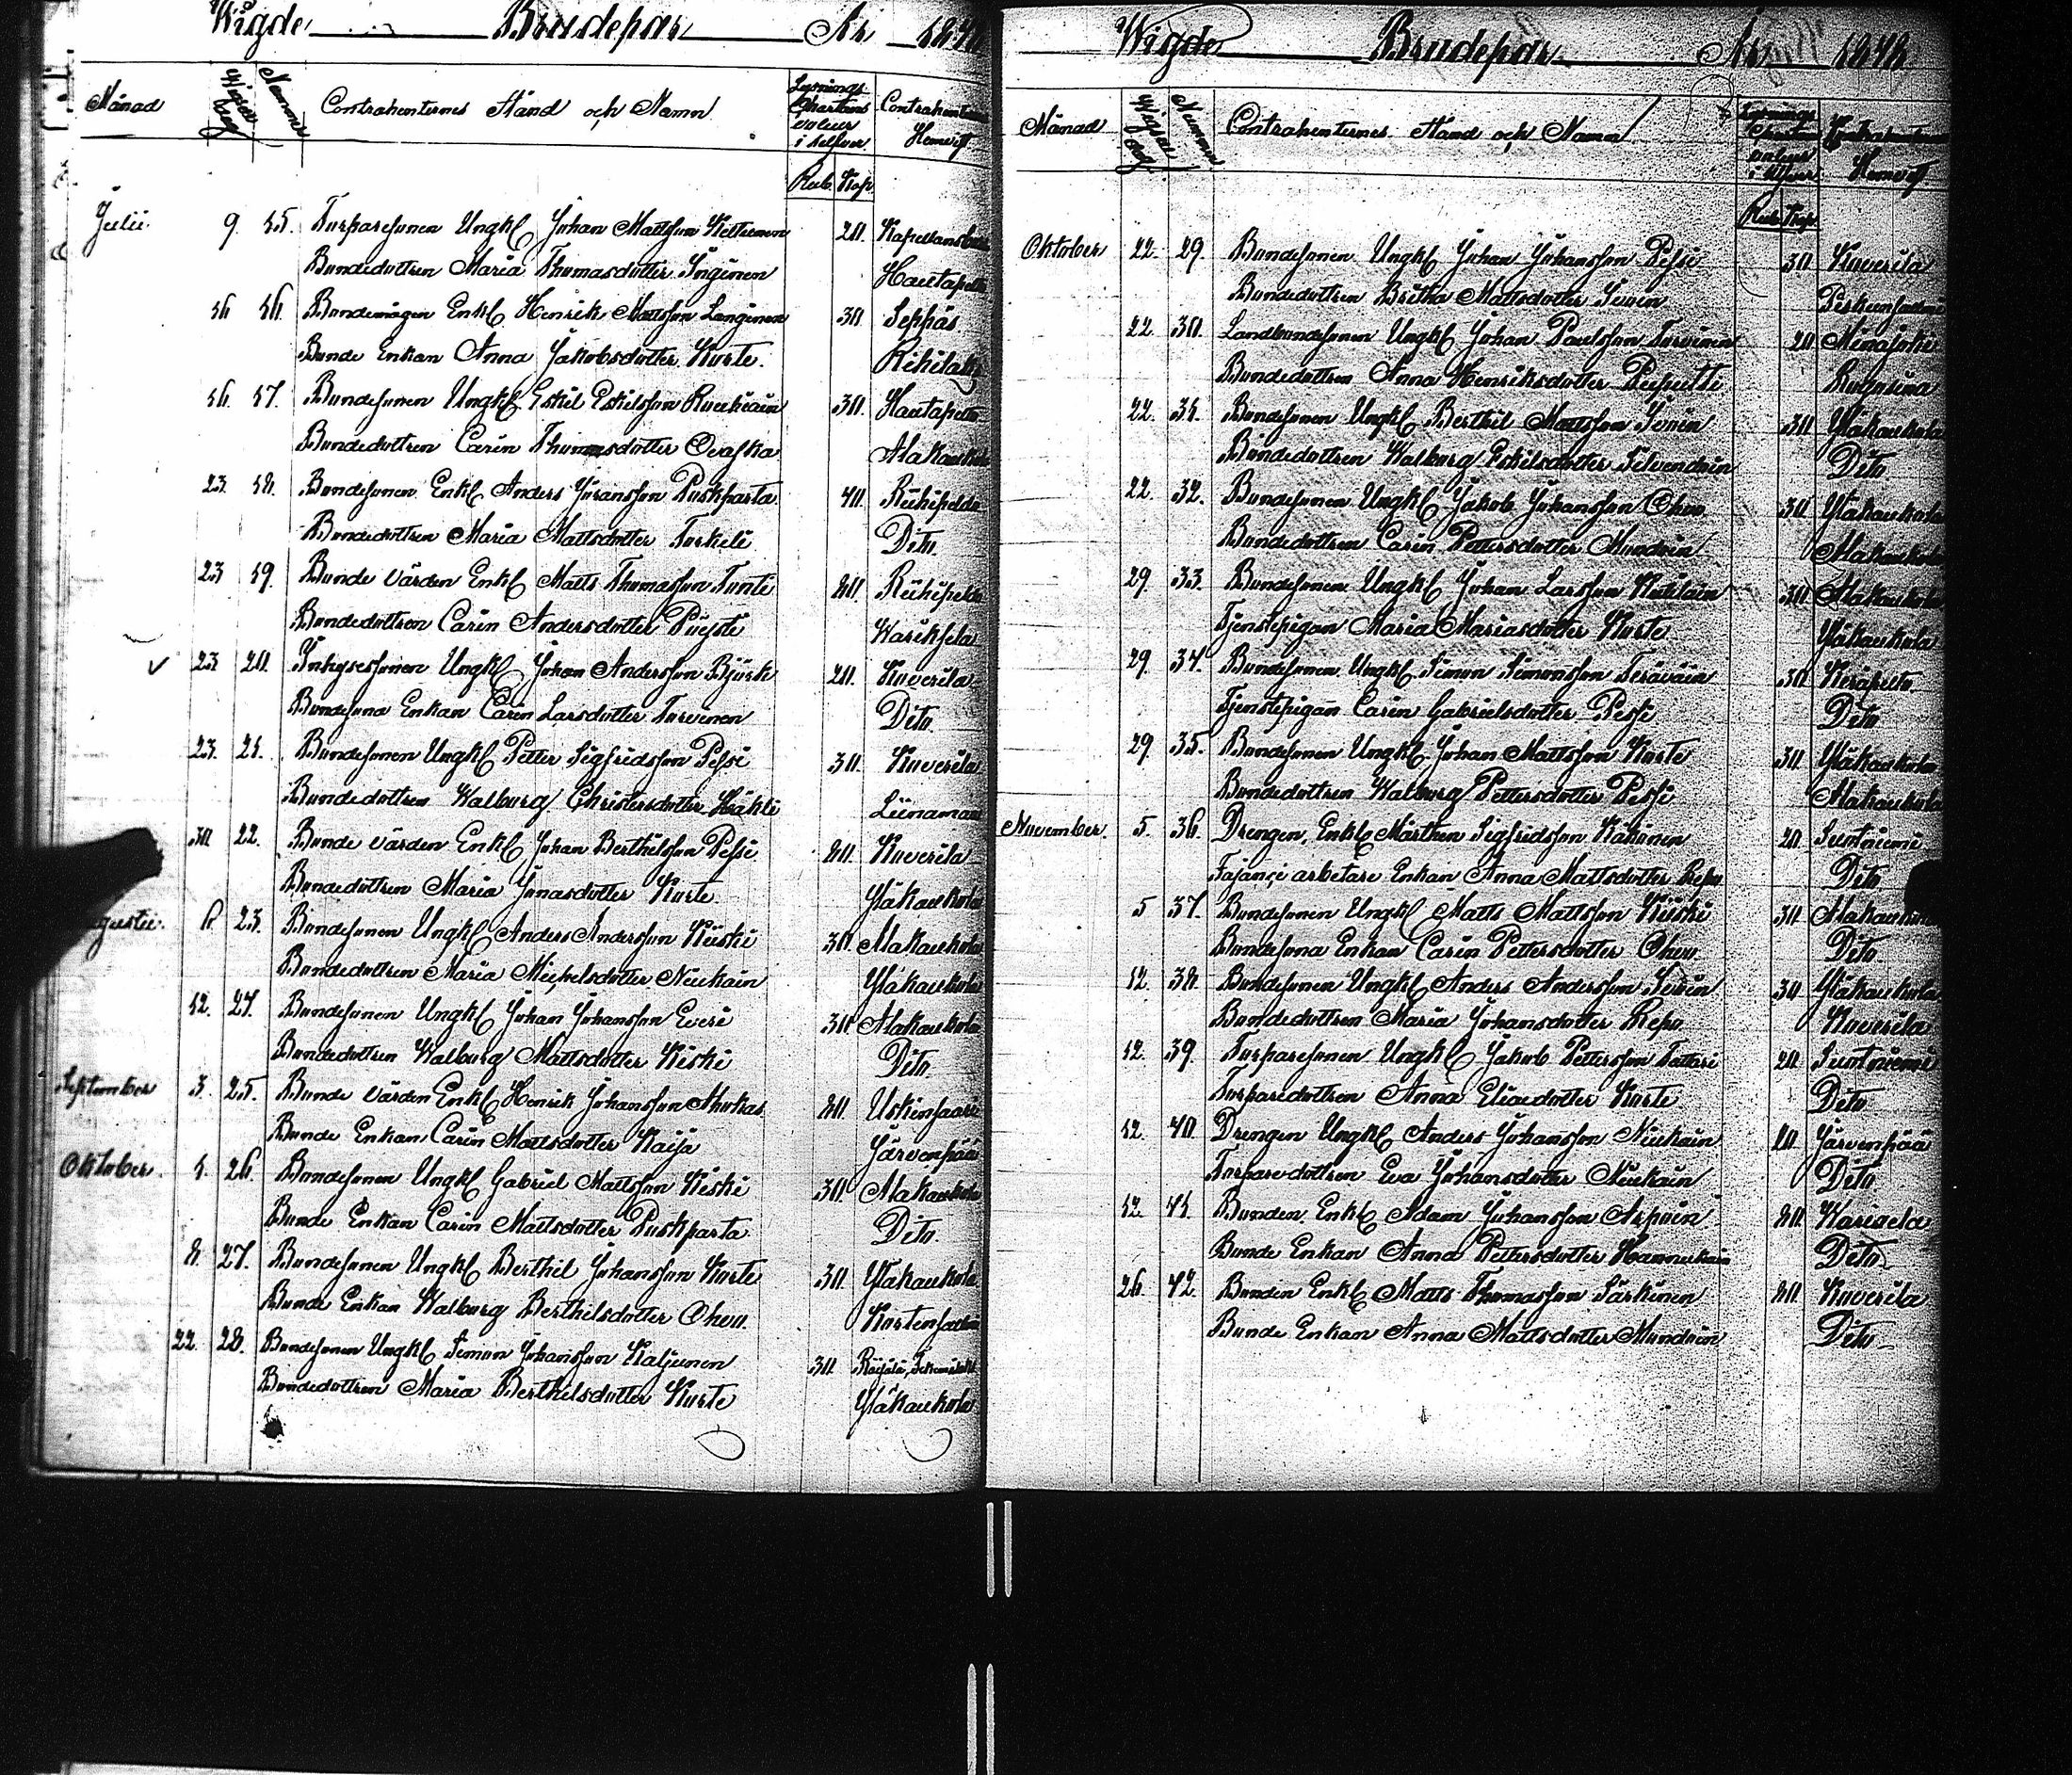 Wigde Brudepar År
Månad Contrahenternes Stånd och Namn
Rub. Kop.
Julii 9 15. Torparesonen Ungkl Johan Mattsson 20.
Bondedottren Maria Thomasdotter Inginen
16 16. Bondemågen Enkl Henrik Mattsson Longinen 30. Seppäs
Bonde Enkan Anna Jakobsdotter Kurte.
16. 17. Bondesonen Ungkl Eskil Eskilsson 30. Hautapelto
Bondedottren Carin Thomasdotter Orafka
23. 18. Bondesonen Enkl Anders Göransson Puskparta 40. Riihipeldo
Bondedottren Maria Mattsdotter Torkeli Dito.
23 19. Bonde Värden Enkl Matts Thomasson Tonti 80. Riihipeldo
Bondedottren Carin Andersdotter Wariksela
23 20. Inhysessonen Ungkl Johan Andersson Björki 20. Kuverila
Bondesona Enkan Carin Larsdotter Torvinen Dito.
23. 21. Bondesonen Ungkl Petter Sigfridsson Pessi 30. Kuverila
Bondedottren Walborg Christersdotter Häkli Liinamaa
30 22. Bonde Värden Enkl Johan Berthilsson Pessi 80. Kuverila
Bondedottren Maria Jonasdotter Kurte. Yläkaukola
8 23. Bondesonen Ungkl Anders Andersson Kiiski 30. Alakaukola
Bondedottren Maria Michelsdotter Niukain Yläkaukola
12. 24. Bondesonen Ungkl Johan Johansson Everi 30 Alakaukola
Bondedottren Walborg Mattsdotter Kiski Dito.
September 3. 25. Bonde Värden Enkl Henrik Johansson Mukas 80. Uskinsaari
Bonde Enkan Carin Mattsdotter Kaija Järvenpää
Oktober. 1. 26. Bondesonen Ungkl Gabriel Mattsson Kiski 30. Alakaukola
Bonde Enkan Carin Mattsdotter Puskparta Dito.
8. 27. Bondesonen Ungkl Berthil Johansson Kurte 30. Yläkaukola
Bonde Enkan Walborg Berthilsdotter Ohvo.
22. 28. Bondesonen Ungkl Simon Johansson Kaljunen 30. Räisälä,
Bondedottren Maria Berthilsdotter Kurte Yläkaukola
Wigde Brudepar År
Månad Contrahenternes Stånd och Namn
Hemvist
Rub. Kop.
Oktober 22. 29. Bondesonen Ungkl Johan Johansson Pessi 30 Kuverila
Bondedottren Britha Mattsdotter Ivoin
22. 30. Landbondesonen Ungkl Johan Paulsson Torvinen 20
Bondedottren Anna Henriksdotter Puputti
22. 31. Bondesonen Ungkl Berthil Mattsson Ivoin 30 Yläkaukola
Bondedottren Walborg Eskilsdotter Silvendoin Dito.
22. 32. Bondesonen Ungkl Jakob Johansson Ohvo 30 Yläkaukola
Bondedottren Carin Pettersdotter Mondoin Alakaukola
29. 33. Bondesonen Ungkl Johan Larsson 30 Alakaukola
Tjenstepigan Maria Mariasdotter Kurte Yläkaukola
29. 34. Bondesonen Ungkl Simon Simonsson Teräväin 30
Tjenstepigan Carin Gabrielsdotter Pessi Dito.
29. 35. Bondesonen Ungkl Johan Mattsson Kurte 30 Yläkaukola
Bondedottren Walborg Pettersdotter Pessi Alakaukola
November. 5. 36. Drengen, Enkl Mårthen Sigfridsson Kakonen 20 Suotniemi
Fajançi arbetare Enkan Anna Mattsdotter Repo Dito
5 37. Bondesonen Ungkl Matts Mattsson Kiiski 30 Alakaukola
Bondesona Enkan Carin Pettersdotter Ohvo Dito.
12. 38. Bondesonen Ungkl Anders Andersson Ivoin 30 Yläkaukola
Bondedottren Maria Johansdotter Repo Kuverila
12. 39. Torparesonen Ungkl Jakob Pettersson Tattari 20 Suotniemi
Torparedottren Anna Eliaedotter Kurte Dito
12. 40. Drengen Ungkl Anders Johansson Niukain 20. Järvenpää
Torparedottren Eva Johansdotter Niukain Dito
12. 41. Bonden Enkl Adam Johansson Arpoin 80. Karisela
Bonde Enkan Anna Pettersdotter Hannukain Dito
26. 42. Bonden Enkl Matts Thomasson Särkinen 80. Kuverila
Bonde Enkan Anna Mattsdotter Mondoin Dito